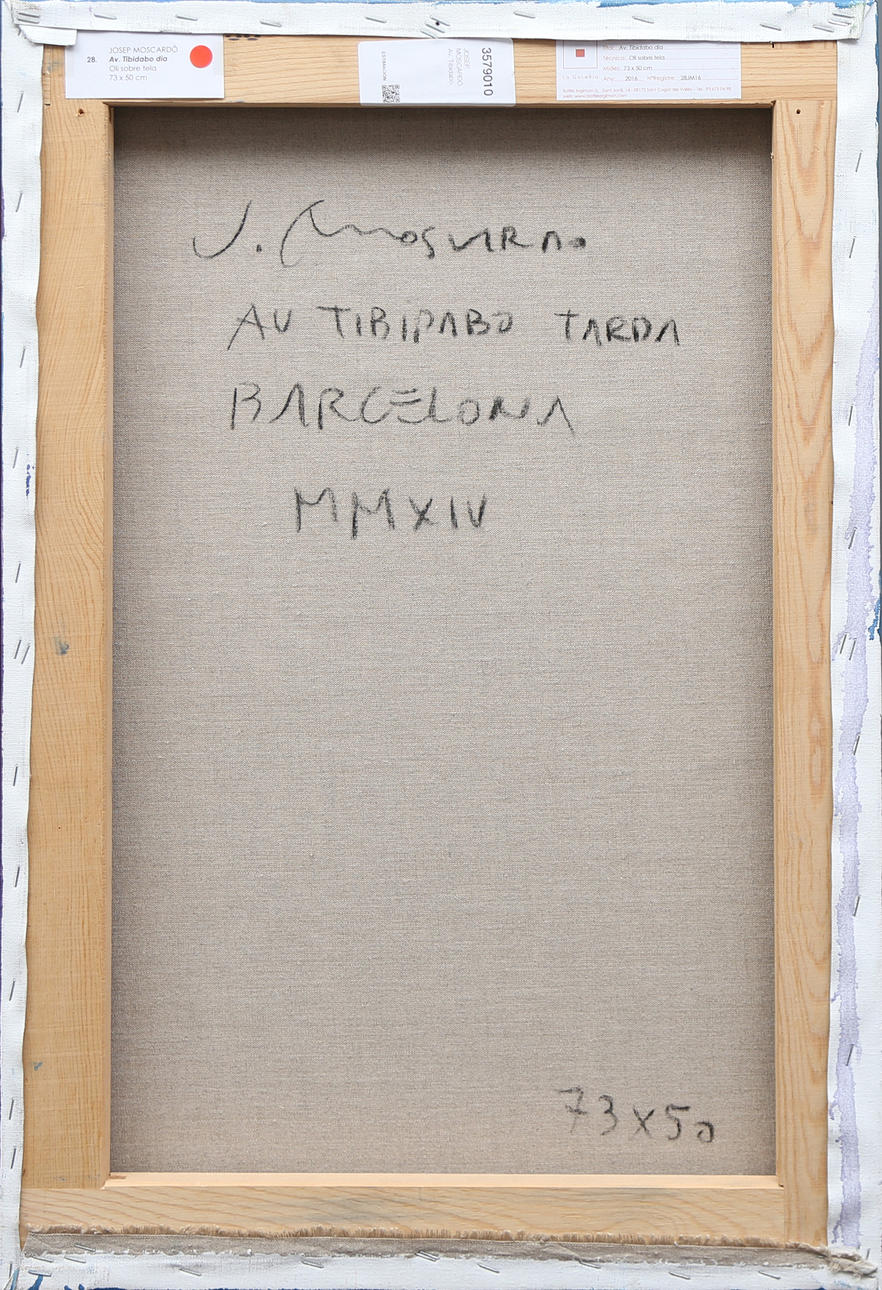 28.
JOSEP MOSCARDÓ
Av. Tibidabo dia
Oli sobre tela
73 x 50 cm
3579010
JOSEP
MOSCARDO
AV TIBIDABO
Títol: Av. Tibidabo dia
Tècnica: Oli sobre tela
Mides: 73 x 50 cm
Any: 2016 NºRegistre: 28JM16
J. Moscardo.
AV TIBIDABO TARDA
BARCELONA
MMXIV
73x50